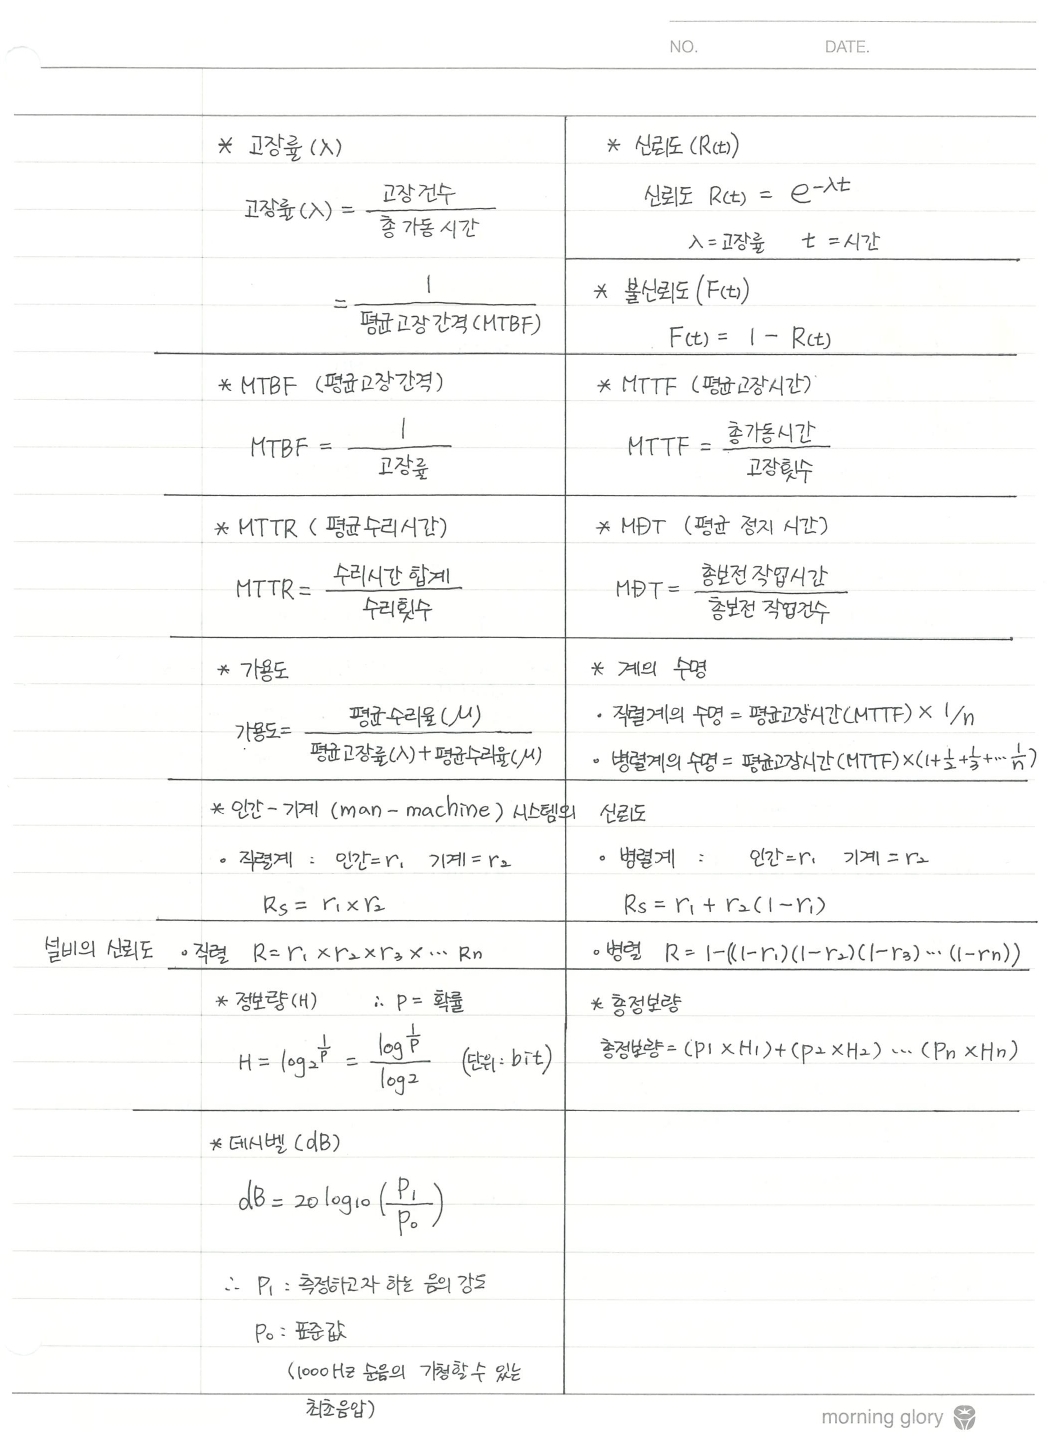 NO. DATE.
* 고장률(λ)
고장률(λ) = 고장건수 / 총 가동 시간
= 1 / 평균고장간격(MTBF)
* 신뢰도(R(t))
신뢰도 R(t) = e^-λt
λ=고장률 t =시간
* 불신뢰도(F(t))
F(t) = 1 - R(t)
* MTBF (평균고장간격)
MTBF = 1 / 고장률
* MTTF (평균고장시간)
MTTF = 총가동시간 / 고장횟수
* MTTR ( 평균수리시간)
MTTR = 수리시간 합계 / 수리횟수
* MDT (평균 정지 시간)
MDT = 총보전 작업시간 / 총보전 작업건수
* 가용도
가용도= 평균수리율(μ) / 평균고장률(λ)+평균수리율(μ)
* 계의 수명
• 직렬계의 수명 = 평균고장시간(MTTF) × 1/n
• 병렬계의 수명 = 평균고장시간(MTTF)×(1+1/2+1/3+…1/n)
* 인간-기계 (man-machine) 시스템의 신뢰도
• 직렬계 : 인간=r₁ 기계=r₂
Rs = r₁×r₂
• 병렬계 : 인간=r₁ 기계=r₂
Rs = r₁ + r₂(1-r₁)
설비의 신뢰도 • 직렬 R = r₁ × r₂ × r₃ × … Rn
• 병렬 R = 1-((1-r₁)(1-r₂)(1-r₃)…(1-rn))
* 정보량(H) ∴ P = 확률
H = log₂ 1/P = log 1/P / log2 (단위: bit)
* 총정보량
총정보량 = (P1×H1)+(P2×H2) … (Pn×Hn)
* 데시벨(dB)
dB = 20 log10 (P₁/P₀)
∴ P₁ : 측정하고자 하는 음의 강도
P₀ : 표준값
(1000Hz 순음의 가청할 수 있는
최초음압)
morning glory